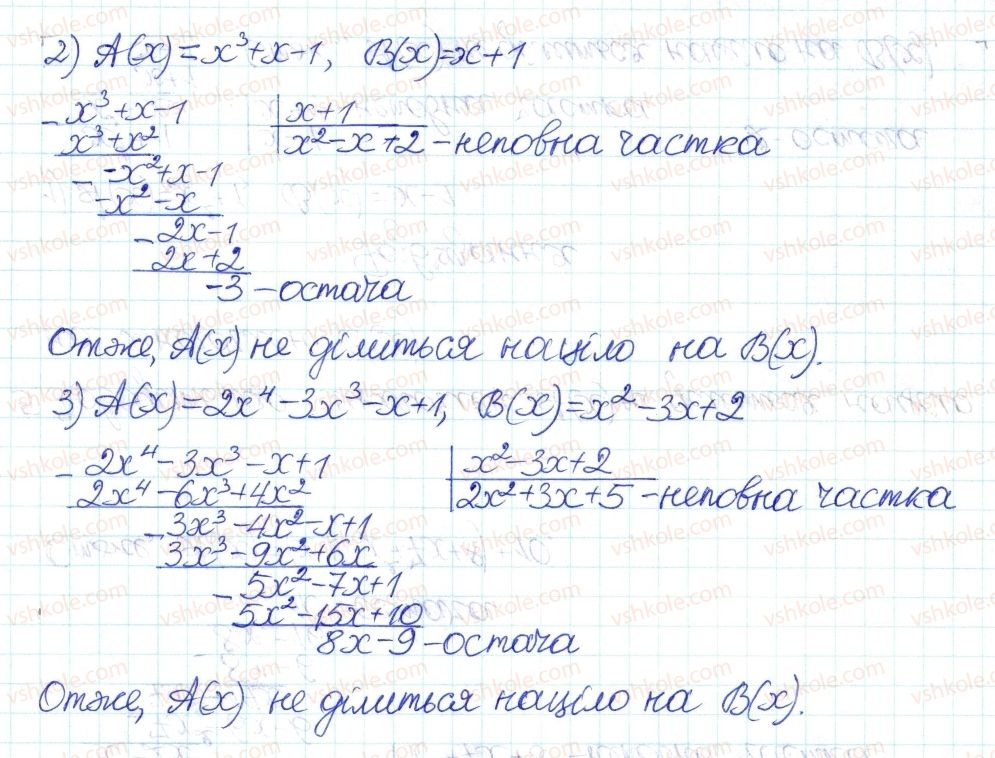 2) A(x)=x³+x-1, B(x)=x+1
- x³+x-1 | x+1
x³+x² | x²-x+2 - неповна частка
- -x²+x-1
-x²-x
- 2x-1
2x+2
-3 - остача
Отже, A(x) не ділиться націло на B(x).
3) A(x)=2x⁴-3x³-x+1, B(x)=x²-3x+2
- 2x⁴-3x³-x+1 | x²-3x+2
2x⁴-6x³+4x² | 2x²+3x+5 - неповна частка
- 3x³-4x²-x+1
3x³-9x²+6x
- 5x²-7x+1
5x²-15x+10
8x-9 - остача
Отже, A(x) не ділиться націло на B(x).
vshkole.com